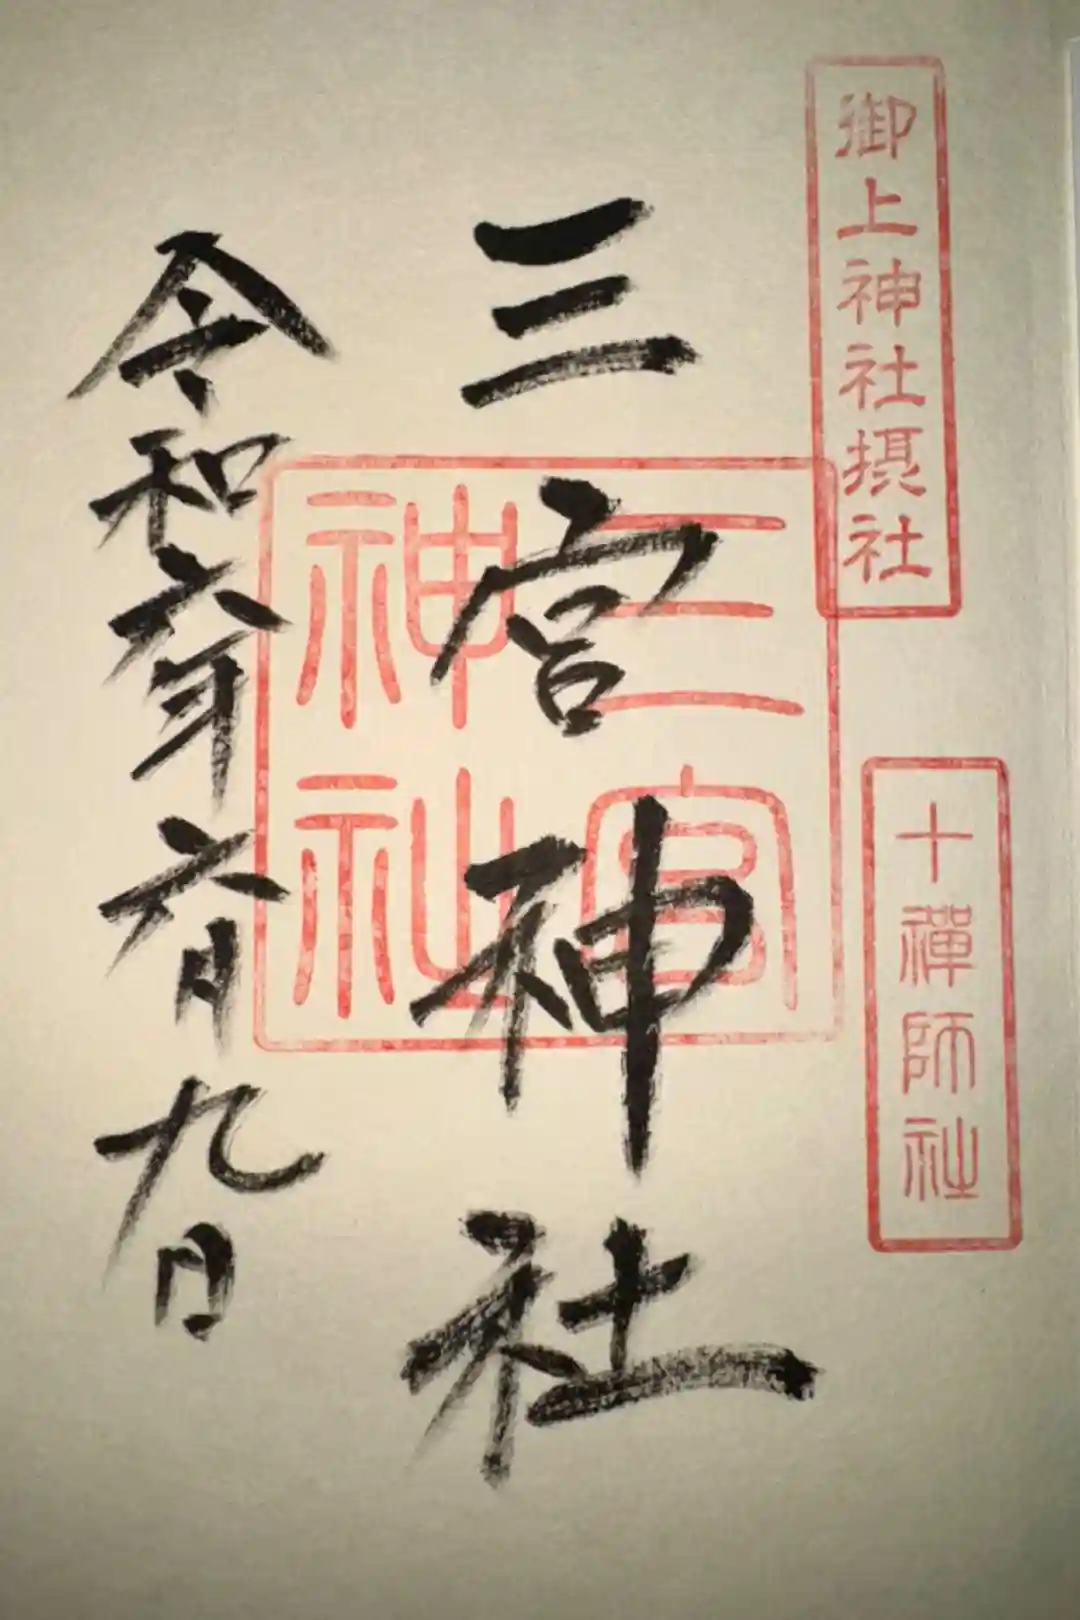 御上神社摂社
十禪師社
三宮神社
三宮
神社
令和六年六月九日